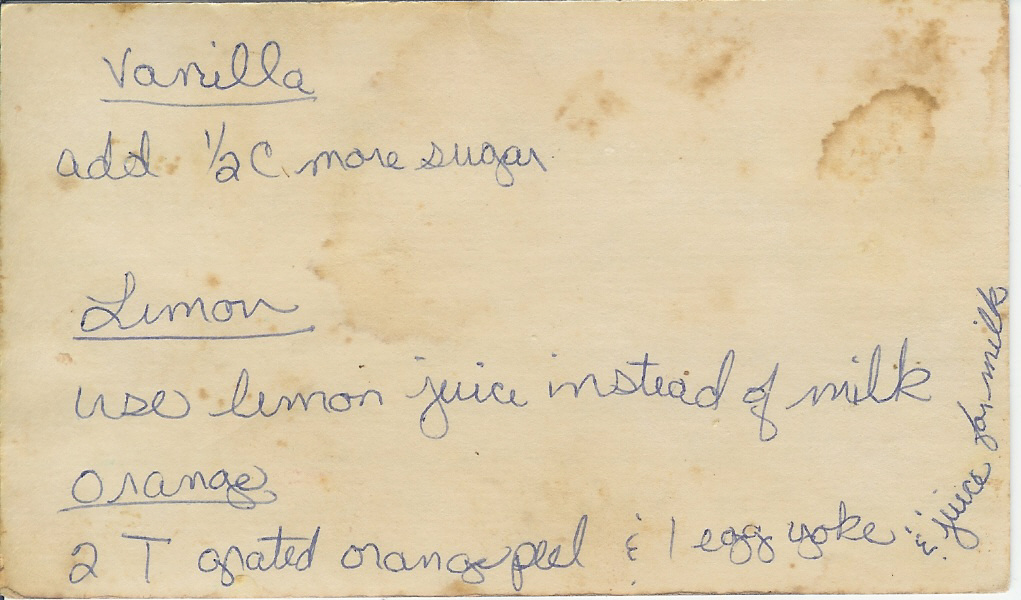 Vanilla
add 1/2 C. more sugar
Lemon
use lemon juice instead of milk
orange
2 T grated orange peel & 1 egg yoke & juice for milk